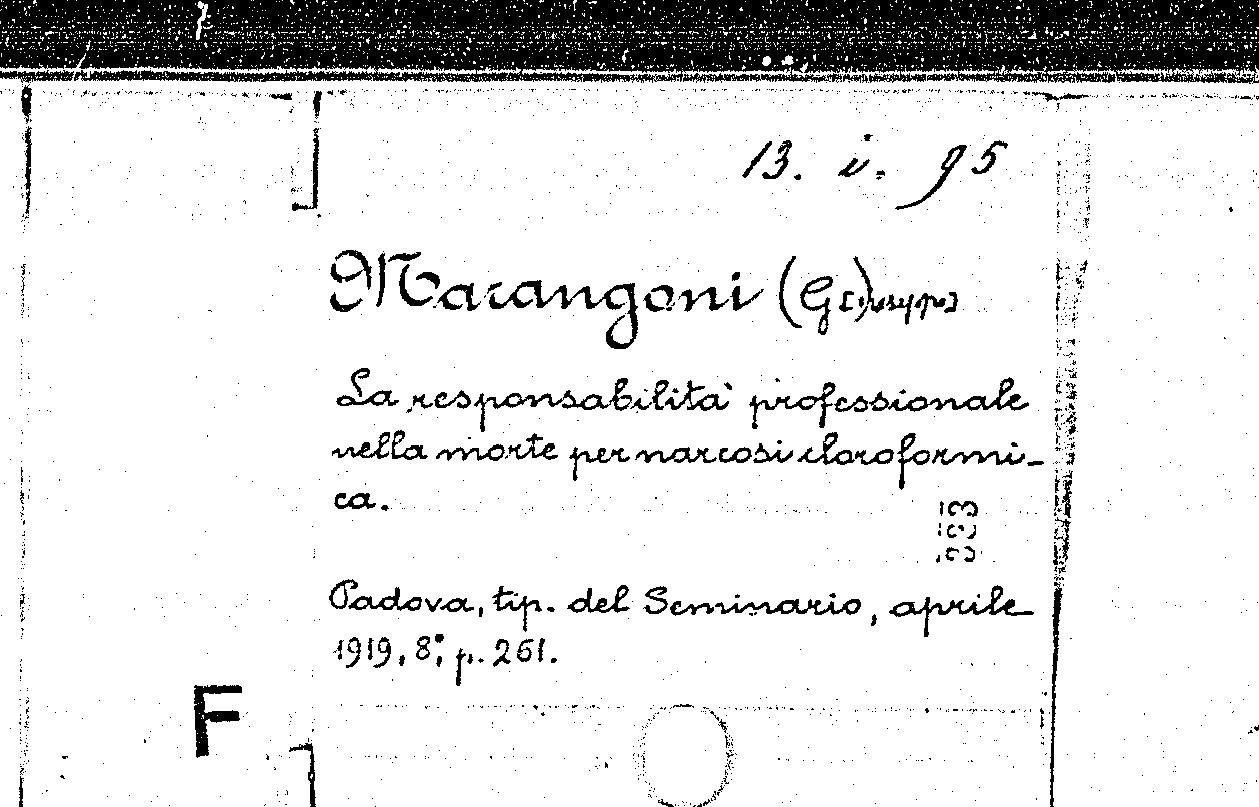 13. i. 95
Marangoni (G[i)useppe]
La responsabilità professionale
nella morte per narcosi cloroformi-
ca.
333
Padova, tip. del Seminario, aprile
1919, 8°, p. 261.
F